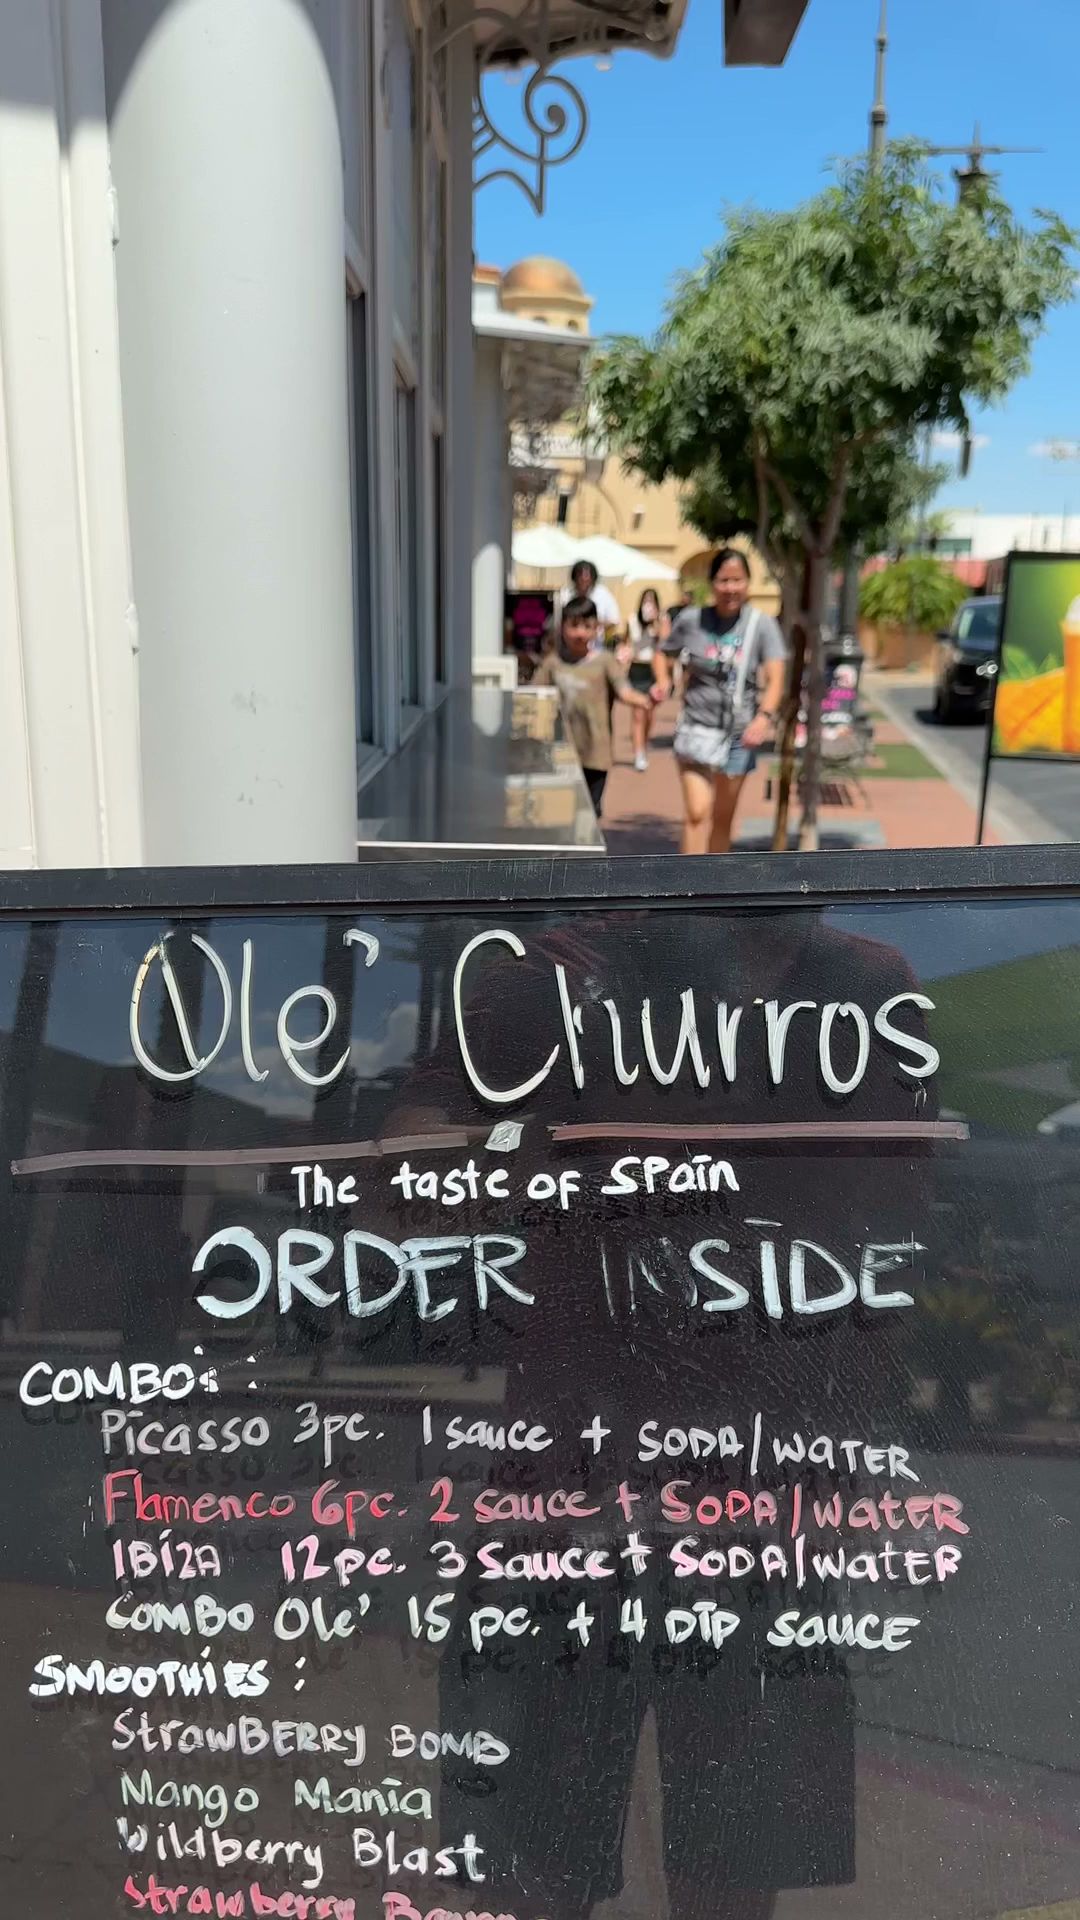 Ole' Churros
The taste of Spain
ORDER INSIDE
COMBO's :
Picasso 3pc. 1 sauce + SODA/WATER
Flamenco 6pc. 2 sauce + SODA/WATER
IBIZA 12pc. 3 Sauce + SODA/WATER
COMBO Ole' 15 pc. + 4 DIP SAUCE
SMOOTHIES :
StrawBERRY BOMB
Mango Mania
Wildberry Blast
Strawberry